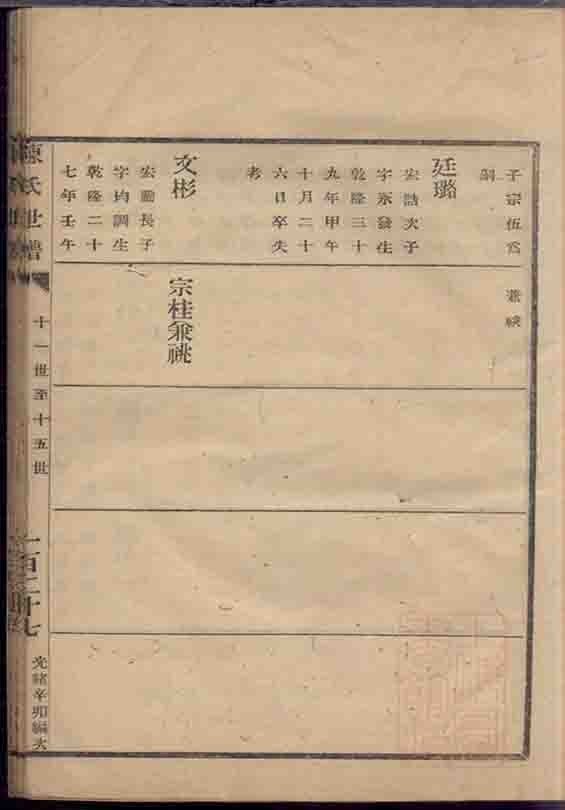 子宗伍爲
嗣
兼祧
廷璐
宏誥次子
字永發生
乾隆三十
九年甲午
十月二十
六日卒失
考
文彬
宏勳長子
字均調生
乾隆二十
七年壬午
宗桂兼祧
陳氏世譜
十一世至十五世
一百二十七
光緒辛卯編次